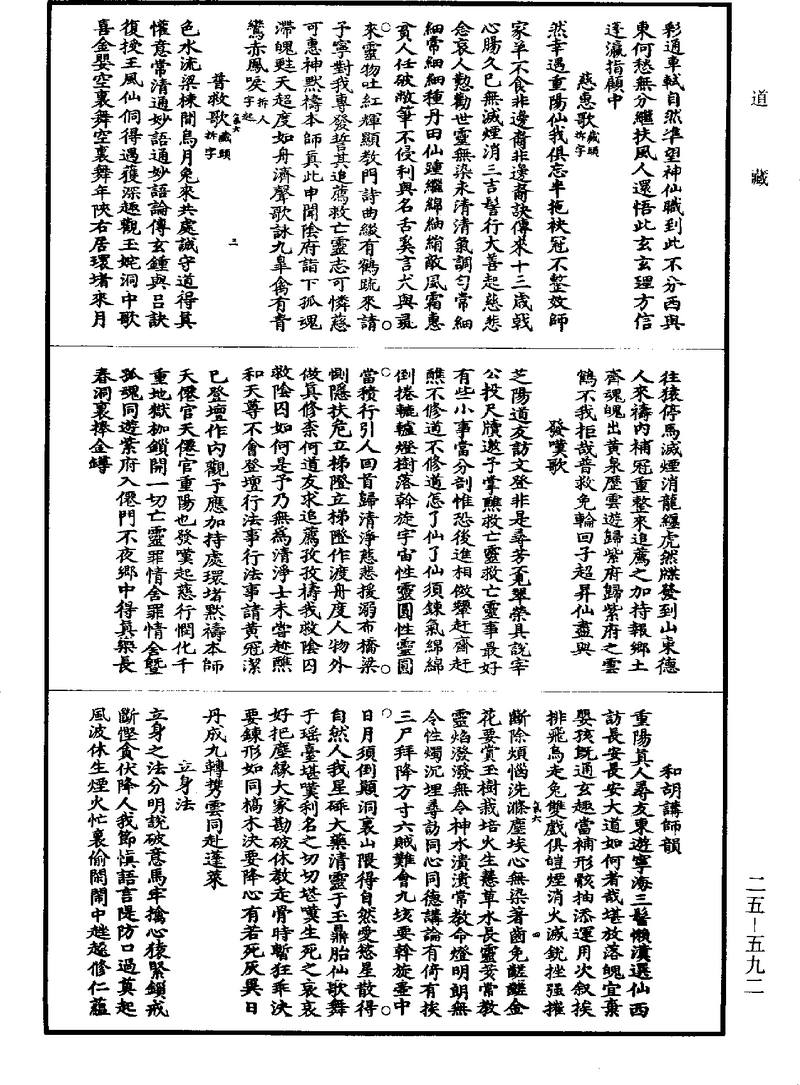 道藏
彩通車軾自然準望神仙職到此不分西與
東何愁無分繼扶風人還悟此玄玄理方信
蓬瀛指顧中
慈惠歌藏頭拆字
然幸遇重陽仙我俱忘半拖袂冠不整效師
家羊不食非邊裔非邊裔訣傳來十三歲戟
心腸久已無滅煙消三吉髻行大善起慈悲
念哀人懃勸世靈無染永清清氣調勻常細
細常細細種丹田仙踵繼綿紬綃敵風霜惠
貧人任破敝筆不侵利與名舌奚言犬與彘
來靈物吐紅輝顯教門詩曲綴有鶴疏來請
予寧對我專發誓其追薦救亡靈志可憐慈
可惠神默禱本師真此申聞陰府詣下孤魂
滯魄甦天超度如舟濟聲歌詠九皋禽有青
鸞赤鳳唳拆人字起
普救歌藏頭拆字
色水流梁棟間烏月兔來共處誠守道得真
懽意常清通妙語通妙語論傳玄鍾與呂訣
復授王風仙侗得遇獲深趣觀玉姹洞中歌
喜金嬰空裏舞空裏舞年陝右居環堵來月
往猿停馬滅煙消龍纏虎然牒發到山東德
人來禱內補冠重整來追薦之加持報鄉土
齊魂魄出黃泉歷雲遊歸紫府歸紫府之雲
鶴不我拒哉普救免輪回子超昇仙盡與
發嘆歌
芝陽道友訪文登非是尋芳覓翠榮具說宰
公投尺牘邀予掌醮救亡靈救亡靈事最好
有些小事當分剖惟恐後進相傚顰赶齋赶
醮不修道不修道怎了仙了仙須鍊氣綿綿
倒捲轆轤燈樹落斡旋宇宙性靈圓性靈圓
當積行引人回首歸清淨慈悲援溺布橋梁
惻隱扶危立梯隥立梯隥作渡舟度人物外
做真修柰何道友求追薦孜孜禱我救陰囚
救陰囚如何是予乃無為清淨士未嘗趂醮
和天尊不會登壇行法事行法事請黃冠潔
已登壇作內觀予應加持處環堵默禱本師
天僊官天僊官重陽也發嘆起慈行憫化千
重地獄枷鎖開一切亡靈罪情舍罪情舍曁
孤魂同遊紫府入僊門不夜鄉中得真樂長
春洞裏捧金罇
和胡講師韻
重陽真人尋友東遊寧海三髻懶漢選仙西
訪長安長安大道如何者哉堪放落魄宜棄
嬰孩既通玄趣當補形骸抽添運用火叙挨
排飛烏走兔雙戲俱皚煙消火滅銳挫强摧
斷除煩惱洗滌塵埃心無染著齒免鹺鹺金
花要賞玉樹栽培火生慧草水長靈荄常教
靈焰潑潑無令神水潰潰常教命燈明朗無
令性燭沉埋尋訪同心同德講論有倚有挨
三尸拜降方寸六賊難會九垓要斡旋壺中
日月須倒顛洞裏山隈得自然愛慾星散得
自然人我星砕大藥清靈于玉鼎胎仙歌舞
于瑶臺堪嘆利名之切切堪嘆生死之哀哀
好把塵緣大家勘破休教走骨時暫狂乖決
要鍊形如同槁木決要降心有若死灰異日
丹成九轉携雲同赴蓬萊
立身法
立身之法分明說破意馬牢擒心猿緊鎖戒
斷慳貪伏降人我節慎語言隄防口過莫起
風波休生煙火忙裏偷閑閙中趓趍修仁蘊
二五－五九二